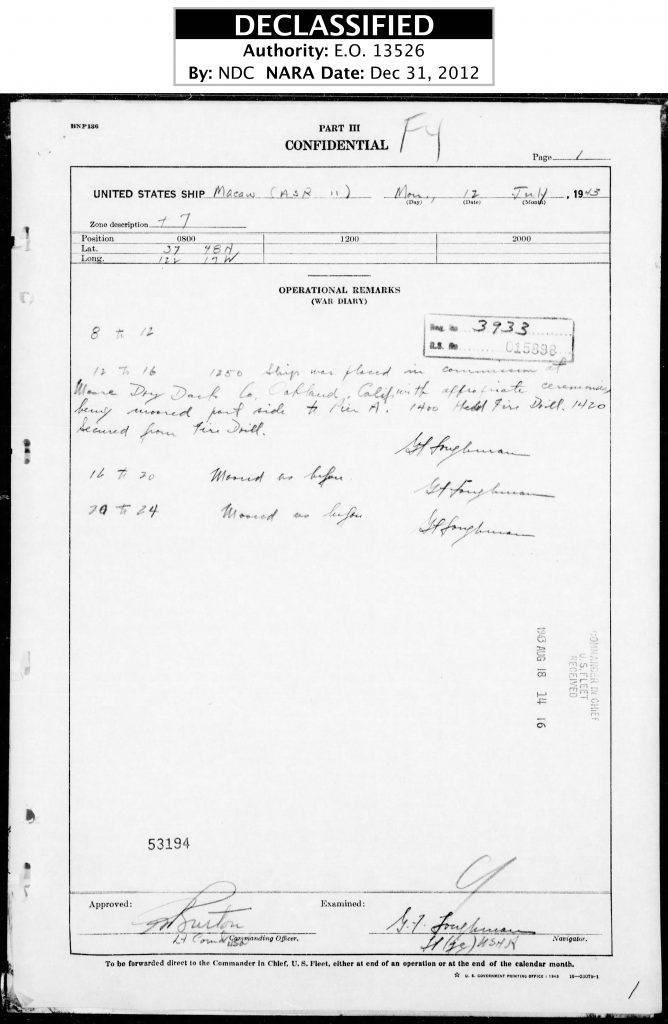 DECLASSIFIED
Authority: E.O. 13526
By: NDC NARA Date: Dec 31, 2012
BNP136
PART III
CONFIDENTIAL
Page 1
UNITED STATES SHIP Macaw (ASR 11) Mon, 12 July, 1943
(Day) (Date) (Month)
Zone description + 7
Position 0800 1200 2000
Lat. 37 48 N
Long. 122 17 W
OPERATIONAL REMARKS
(WAR DIARY)
8 to 12
Reg. No 3933
R.S. No 015898
12 To 16 1250 Ship was placed in commission at
Moore Dry Dock Co, Oakland, Calif, with appropriate ceremonies
being moored port side to Pier A. 1400 Held Fire Drill. 1420
Secured from Fire Drill.
16 to 20 Moored as before.
20 to 24 Moored as before
1943 AUG 18 14 16
COMMANDER IN CHIEF
U.S. FLEET
RECEIVED
53194
Approved: Examined:
Burton G. F. Loughman
Lt Comdr Commanding Officer. Lt (jg) USNR Navigator.
To be forwarded direct to the Commander in Chief, U. S. Fleet, either at end of an operation or at the end of the calendar month.
☆ U. S. GOVERNMENT PRINTING OFFICE : 1943
1